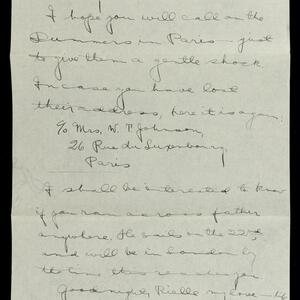 I hope you will call on the
Dummers in Paris - just
to give them a gentle shock.
In case you have lost
their address, here it is again:
c/o Mrs. W. P. Johnson,
26 Rue du Luxembourg,
Paris
I shall be interested to know
if you run across father
anywhere. He sails on the 22nd
and will be in London by
the time this reaches you.
Good night, Rielle my love -